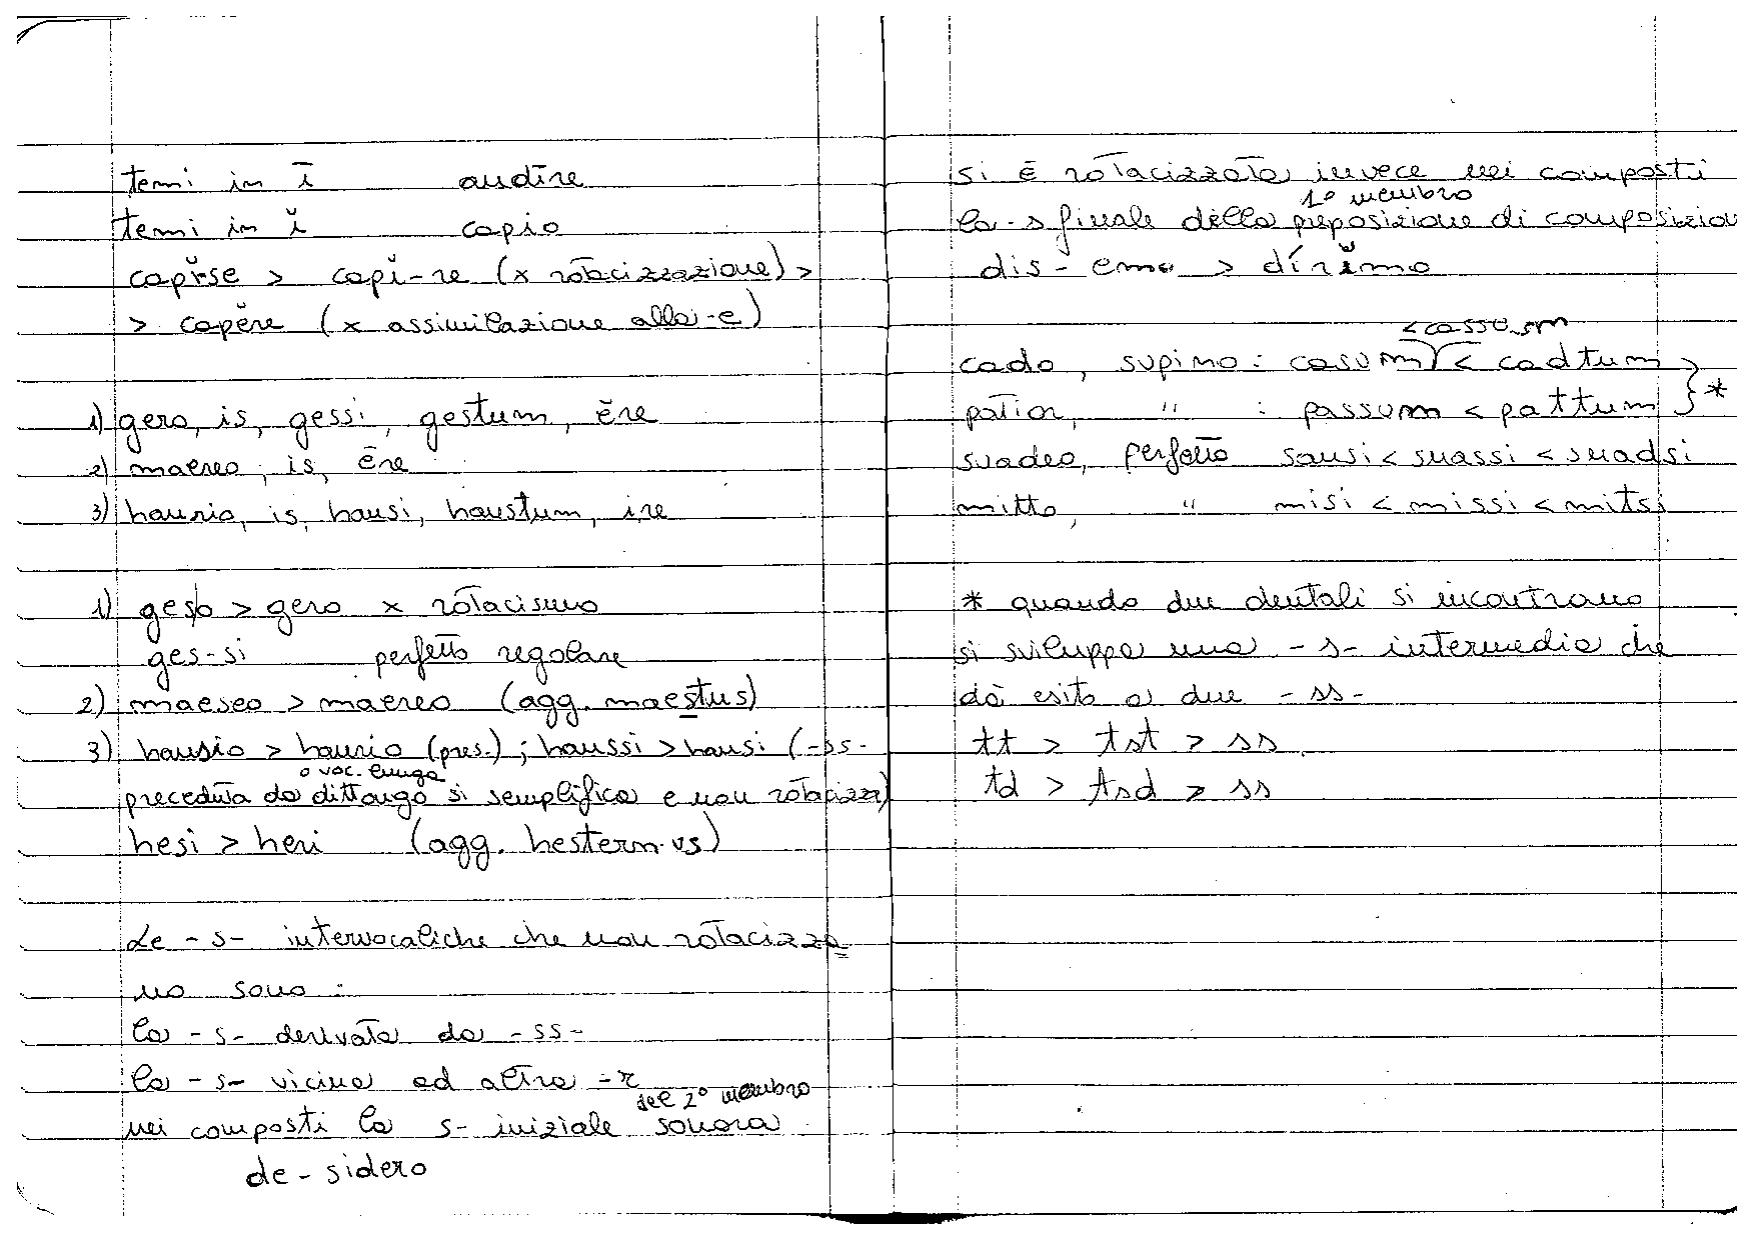 temi in ī audīre
temi in ĭ capio
capĭse > capĭ-re (x rotacizzazione) >
> capĕre (x assimilazione alla -e)
1) gero, is, gessi, gestum, ĕre
2) maereo, is, ēre
3) haurio, is, hausi, haustum, ire
1) geso > gero x rotacismo
ges-si perfetto regolare
2) maeseo > maereo (agg. maestus)
3) hausio > haurio (pres.); haussi > hausi (-ss-
o voc. lunga
preceduta da dittongo si semplifica e non rotacizza)
hesi > heri (agg. hestern-us)
Le -s- intervocaliche che non rotacizza
no sono:
la -s- derivata da -ss-
la -s- vicina ad altra -r
del 2° membro
nei composti la s- iniziale sonora
de-sidero
si è rotacizzata invece nei composti
1° membro
la -s finale della preposizione di composizion
dis-emo > dírĭmo
< cassum
cado, supino: casum < cadtum
patior, " : passum < pattum } *
suadeo, perfetto sausi < suassi < suadsi
mitto, " misi < missi < mitsi
* quando due dentali si incontrano
si sviluppa una -s- intermedia che
dà esito a due -ss-
tt > tst > ss
td > tsd > ss